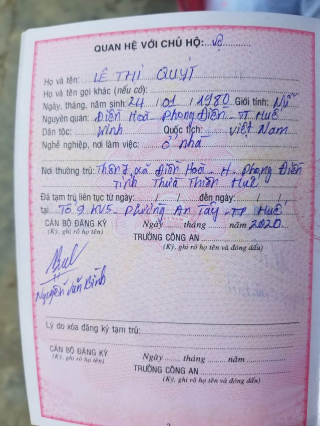 QUAN HỆ VỚI CHỦ HỘ: vợ
Họ và tên: LÊ THỊ QUÝT
Họ và tên gọi khác (nếu có):
Ngày, tháng, năm sinh: 24 / 01 / 1980 Giới tính: Nữ
Nguyên quán: Điền Hoà - Phong Điền - TT Huế
Dân tộc: Kinh Quốc tịch: Việt Nam
Nghề nghiệp, nơi làm việc: ở nhà
Nơi thường trú: Thôn 7, xã Điền Hoà - H. Phong Điền
tỉnh Thừa Thiên Huế
Đã tạm trú liên tục từ ngày: / / đến ngày: / /
tại Tổ 9 KV5 - Phường An Tây - TP Huế
CÁN BỘ ĐĂNG KÝ Ngày tháng năm 2020
(Ký, ghi rõ họ tên) TRƯỞNG CÔNG AN
(Ký, ghi rõ họ tên và đóng dấu)
Nguyễn Văn Bình
Lý do xóa đăng ký tạm trú:
CÁN BỘ ĐĂNG KÝ Ngày tháng năm
(Ký, ghi rõ họ tên) TRƯỞNG CÔNG AN
(Ký, ghi rõ họ tên và đóng dấu)